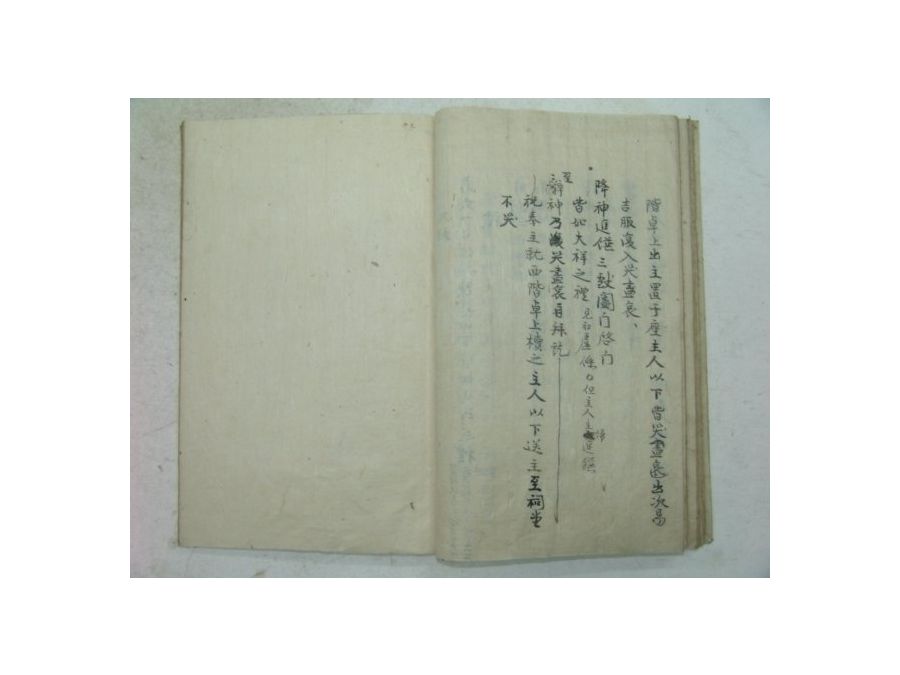 階卓上出主置于座主人以下皆哭盡哀出次易
吉服復入哭盡哀、
降神進饌三獻闔门啓门
皆如大祥之禮 見初虞條 但主人主婦進饌
至辭神乃哭盡哀再拜訖
祝奉主就西階卓上櫝之主人以下送主至祠堂
不哭